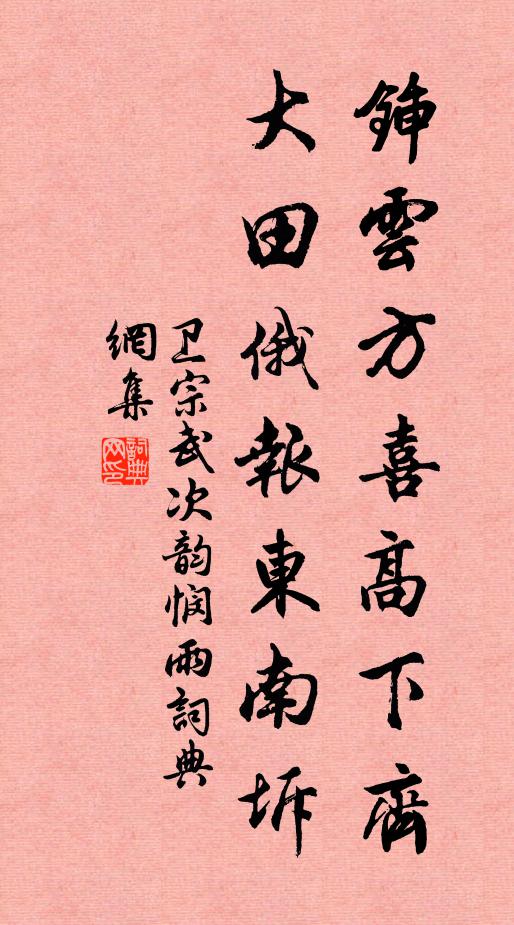 鍤雲方喜高下齊
大田俄報東南坼
卫宗武次韵悯雨詞典
網集
詞典網印